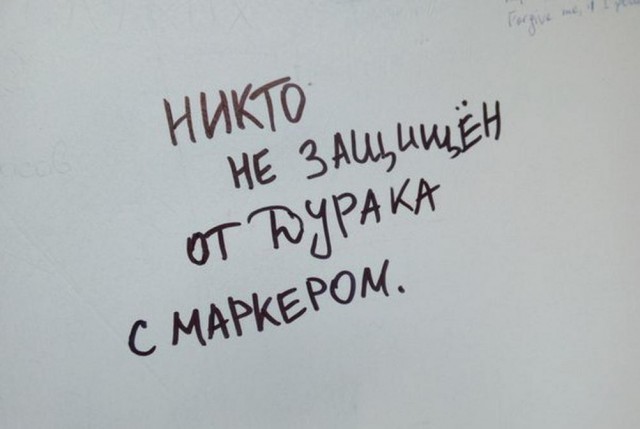 Forgive me, if I
НИКТО
НЕ ЗАЩИЩЁН
ОТ ДУРАКА
С МАРКЕРОМ.